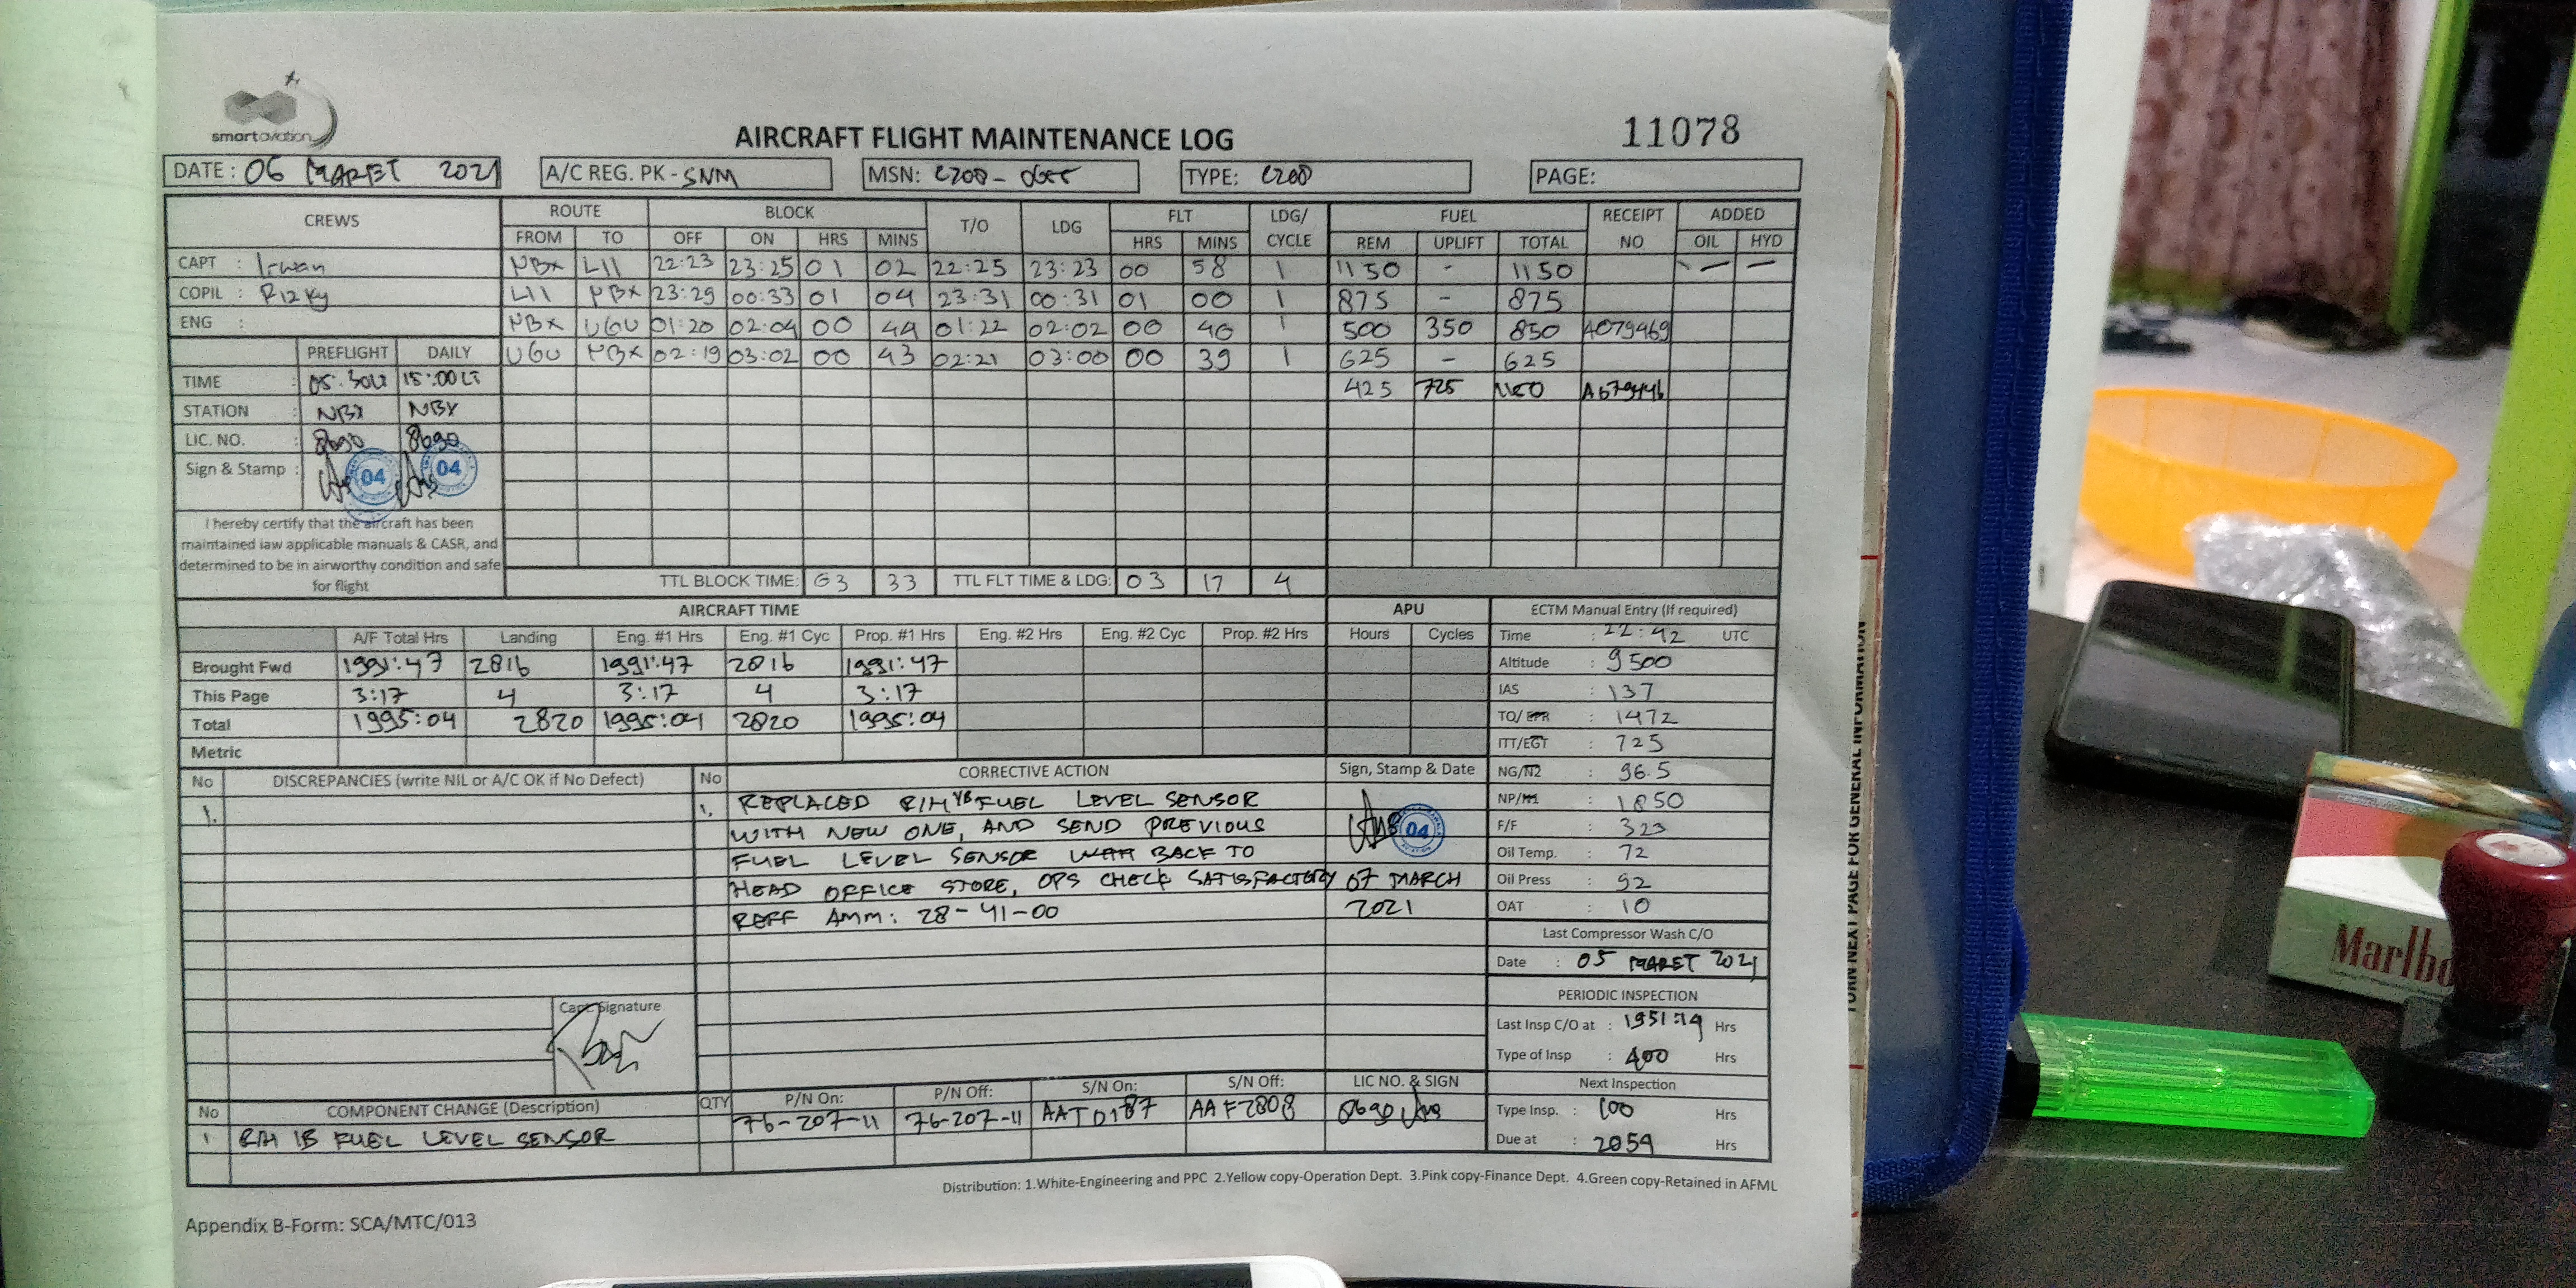 smart aviation
AIRCRAFT FLIGHT MAINTENANCE LOG
11078
DATE : 06 MARET 2021 A/C REG. PK - SNM MSN: C208 - TYPE: C208 PAGE:
CREWS ROUTE BLOCK T/O LDG FLT LDG/ CYCLE FUEL RECEIPT NO ADDED
FROM TO OFF ON HRS MINS HRS MINS REM UPLIFT TOTAL OIL HYD
CAPT : Irwan NBX LII 22:23 23:25 01 02 22:25 23:23 00 58 1 1150 - 1150 - -
COPIL : Rizky LII NBX 23:29 00:33 01 04 23:31 00:31 01 00 1 875 - 875
ENG : NBX UGU 01:20 02:04 00 44 01:22 02:02 00 40 1 500 350 850 A079469
PREFLIGHT DAILY UGU NBX 02:19 03:02 00 43 02:21 03:00 00 39 1 625 - 625
TIME : 05.30LT 15:00LT 425 725 1150
STATION : NBX NBX
LIC. NO. : 8690 8690
Sign & Stamp : 04 04
I hereby certify that the aircraft has been
maintained iaw applicable manuals & CASR, and
determined to be in airworthy condition and safe
for flight
TTL BLOCK TIME: 03 33 TTL FLT TIME & LDG: 03 17 4
AIRCRAFT TIME APU ECTM Manual Entry (If required)
A/F Total Hrs Landing Eng. #1 Hrs Eng. #1 Cyc Prop. #1 Hrs Eng. #2 Hrs Eng. #2 Cyc Prop. #2 Hrs Hours Cycles Time : 22:42 UTC
Brought Fwd 1991:47 2816 1991:47 2816 1991:47 Altitude : 9500
This Page 3:17 4 3:17 4 3:17 IAS : 137
Total 1995:04 2820 1995:04 2820 1995:04 TQ/EPR : 1472
Metric ITT/EGT : 725
No DISCREPANCIES (write NIL or A/C OK if No Defect) No CORRECTIVE ACTION Sign, Stamp & Date NG/N2 : 96.5
1. 1. REPLACED R/H IB FUEL LEVEL SENSOR NP/N1 : 1850
WITH NEW ONE, AND SEND PREVIOUS 04 F/F : 323
FUEL LEVEL SENSOR BACK TO Oil Temp. : 72
HEAD OFFICE STORE, OPS CHECK SATISFACTORY 07 MARCH Oil Press : 92
REFF AMM: 28-41-00 2021 OAT : 10
Last Compressor Wash C/O
Date : 05 MARET 2021
PERIODIC INSPECTION
Capt. Signature
Last Insp C/O at : 1951:19 Hrs
Type of Insp : 400 Hrs
Next Inspection
No COMPONENT CHANGE (Description) QTY P/N On: P/N Off: S/N On: S/N Off: LIC NO. & SIGN
Type Insp. : 100 Hrs
1 R/H IB FUEL LEVEL SENSOR 76-207-11 76-207-11 AATD187 AAF2808 8690
Due at : 2059 Hrs
Distribution: 1.White-Engineering and PPC 2.Yellow copy-Operation Dept. 3.Pink copy-Finance Dept. 4.Green copy-Retained in AFML
Appendix B-Form: SCA/MTC/013
TURN NEXT PAGE FOR GENERAL INFORMATION
Marlbo